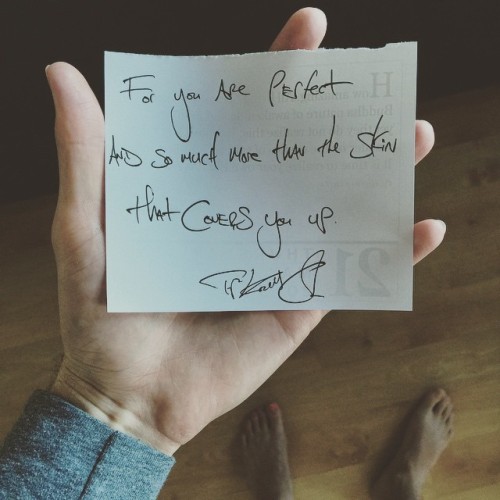 For you Are Perfect
AND so much more than the Skin
that Covers you up.
21